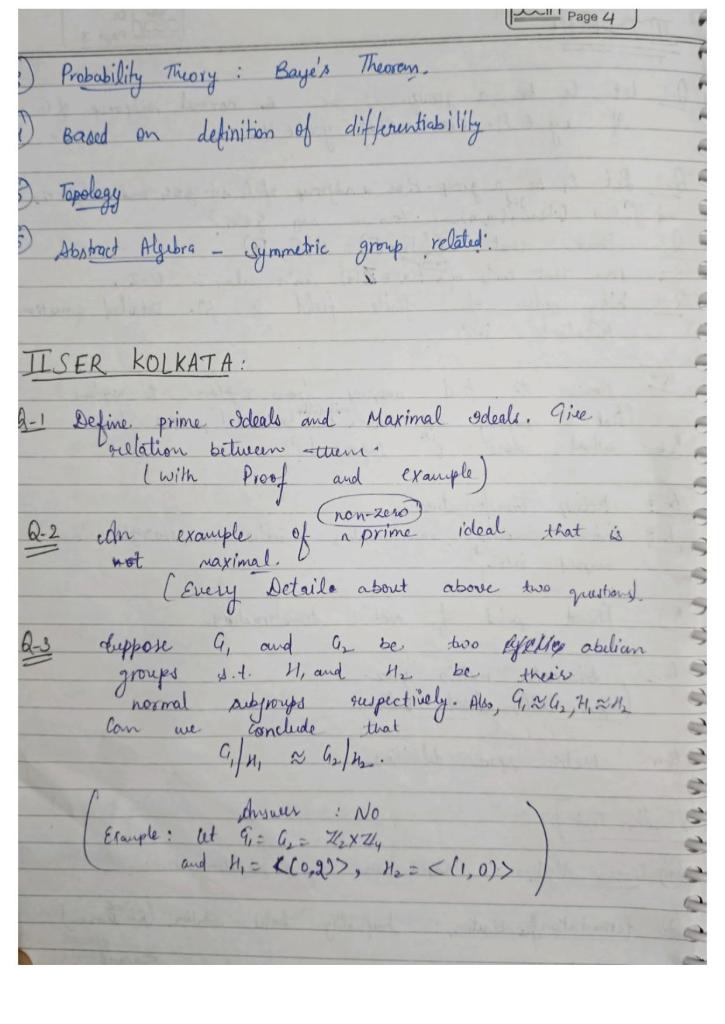 Page 4
Probability Theory : Baye's Theorem.
Based on definition of differentiability
Topology
Abstract Algebra - Symmetric group related.
IISER KOLKATA:
Q-1 Define prime Ideals and Maximal Ideals. Give
relation between them.
(with Proof and example)
(non-zero)
Q-2 An example of a prime ideal that is
not maximal.
(Every Details about above two questions).
Q-3 Suppose G₁ and G₂ be two abelian
groups s.t. H₁ and H₂ be their
normal subgroups respectively. Also, G₁≈G₂, H₁≈H₂
Can we conclude that
G₁/H₁ ≈ G₂/H₂.
Answer : No
Example : let G₁ = G₂ = ℤ₂×ℤ₄
and H₁ = <(0,2)>, H₂ = <(1,0)>